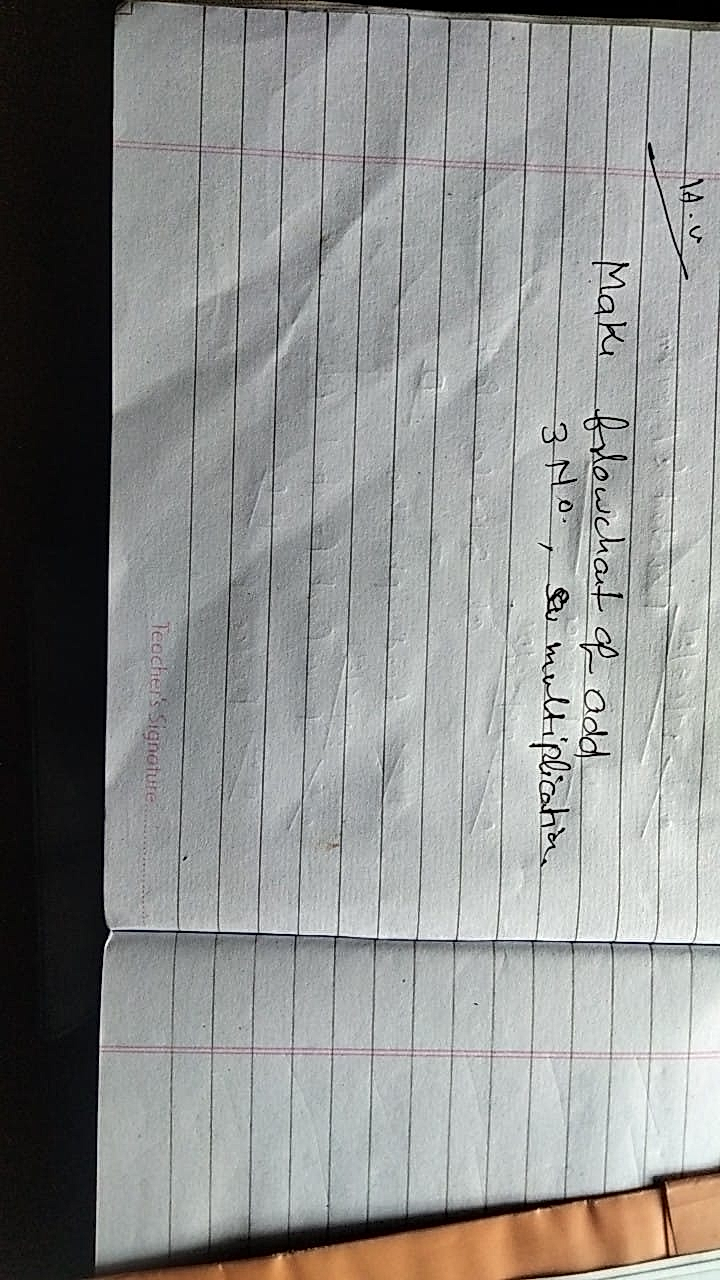 Make flowchart of add
3 No. , multiplication.
Teacher's Signature ..................